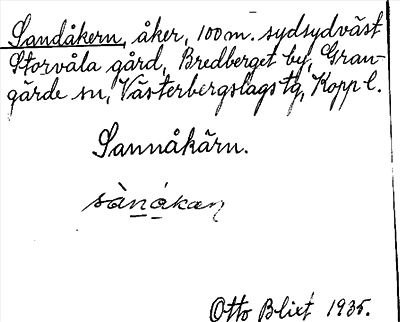 Sandåkern, åker, 100 m. sydsydväst
Storvåla gård, Bredberget by, Gran-
gärde sn, Västerbergslags tg, Kopp l.
Sannåkärn.
Otto Blixt 1935.